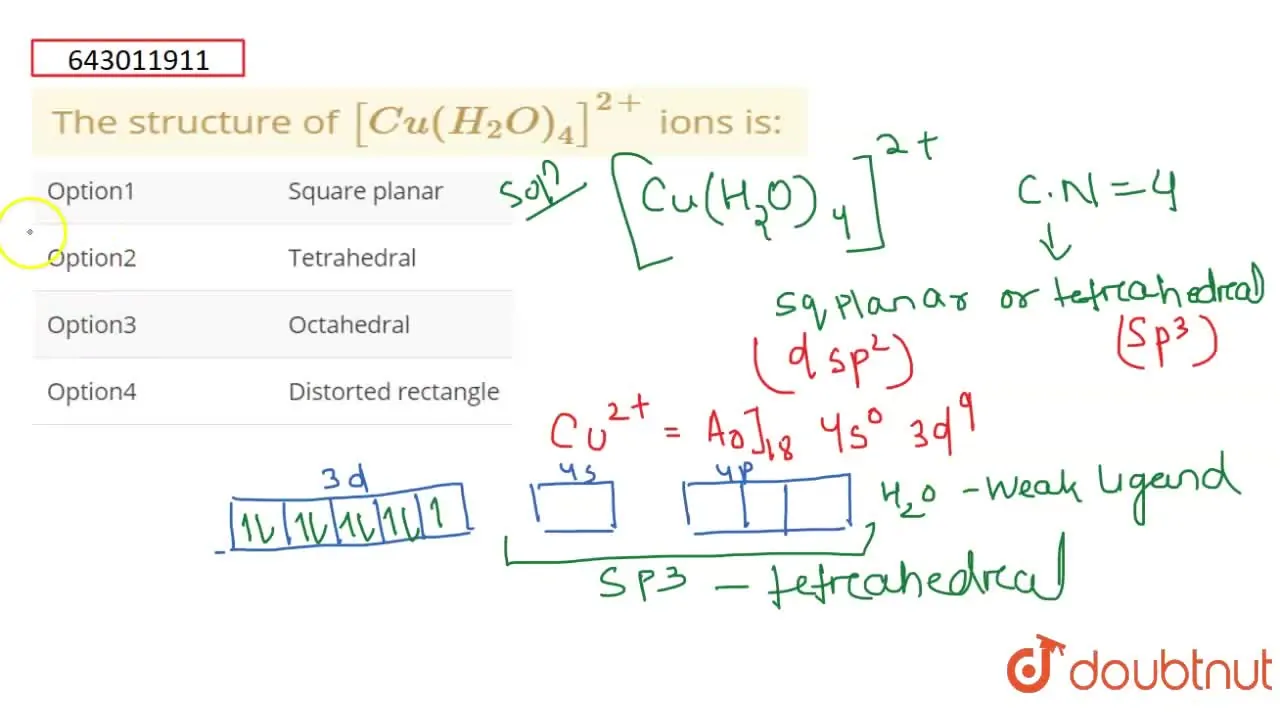 643011911
The structure of [Cu(H₂O)₄]²⁺ ions is:
Option1 Square planar
Option2 Tetrahedral
Option3 Octahedral
Option4 Distorted rectangle
Solⁿ [Cu(H₂O)₄]²⁺ C.N = 4
↓
sq planar or tetrahedral
(dsp²) (Sp³)
Cu²⁺ = Ar]₁₈ 4s⁰ 3d⁹
3d 4s 4p
H₂O - weak ligand
SP3 - tetrahedral
doubtnut